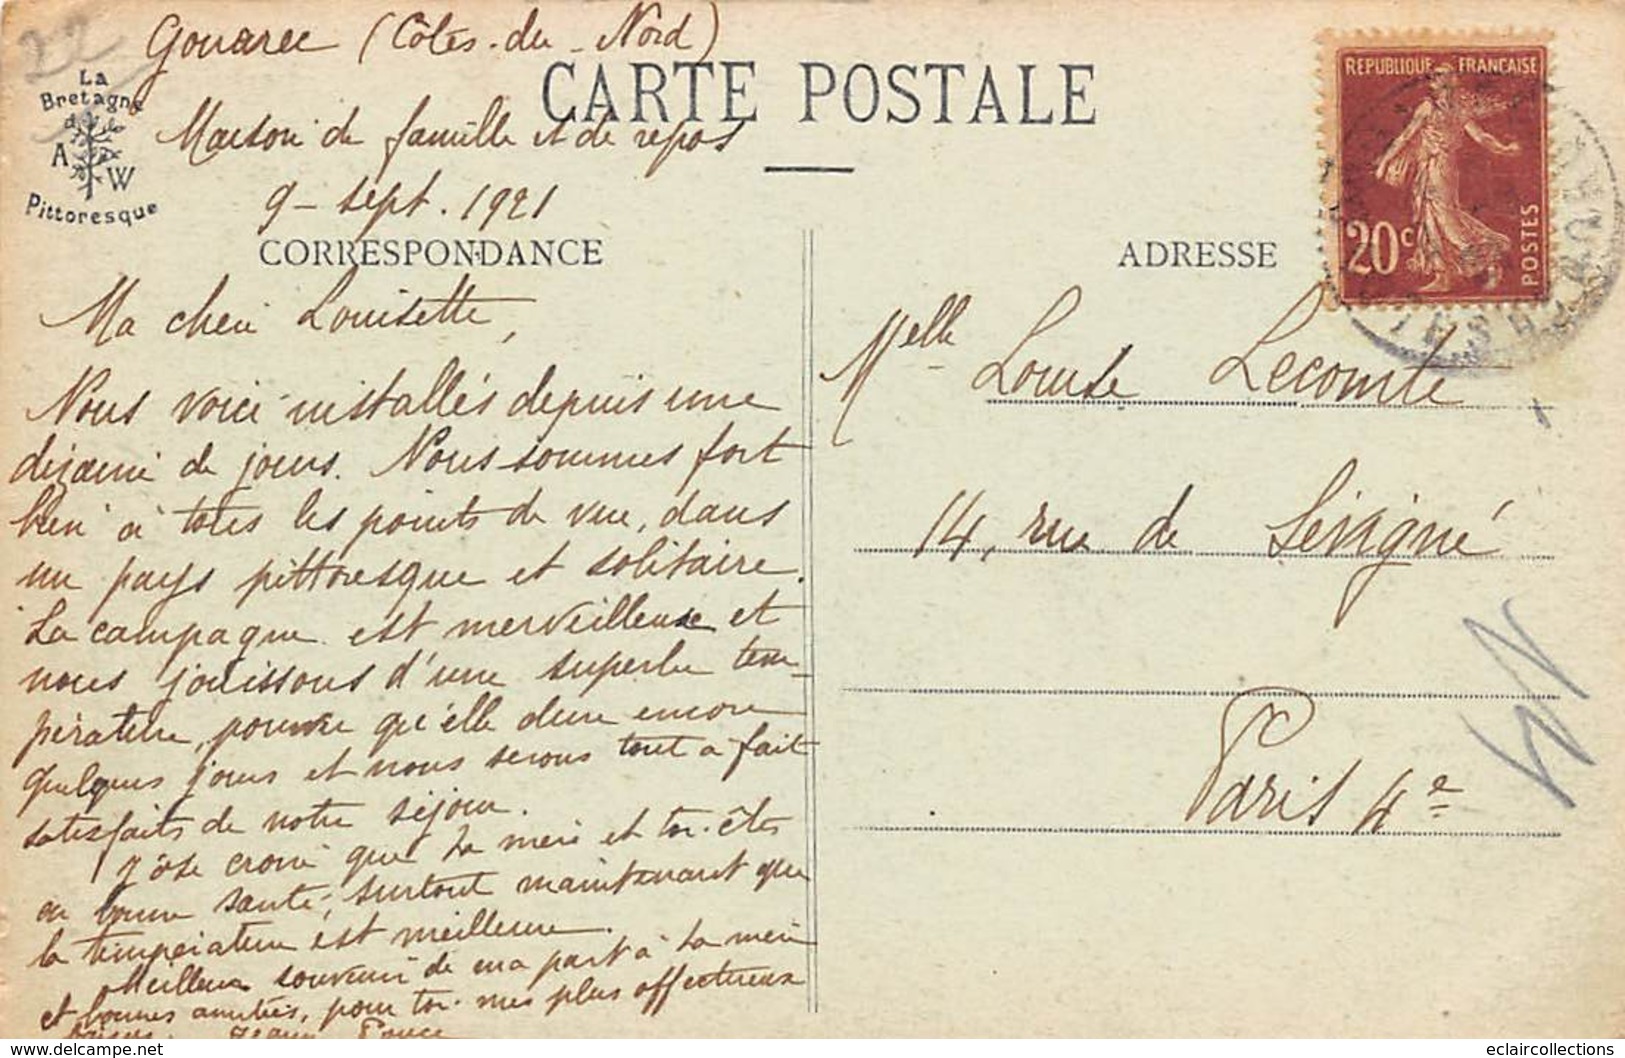 22
Gouarec (Côtes-du-Nord)
La
Bretagne
A W
Pittoresque
Maison de famille et de repos
9 - sept. 1921
CARTE POSTALE
CORRESPONDANCE
ADRESSE
REPUBLIQUE FRANÇAISE
20c
POSTES
Ma chère Louisette,
Nous voici installés depuis une
dizaine de jours. Nous sommes fort
bien à tous les points de vue, dans
un pays pittoresque et solitaire.
La campagne est merveilleuse et
nous jouissons d'une superbe tem-
pérature, pourvu qu'elle dure encore
quelques jours et nous serons tout à fait
satisfaits de notre séjour.
J'ose croire que ta mère et toi êtes
en bonne santé, surtout maintenant que
la température est meilleure.
Meilleur souvenir de ma part à ta mère
et bonnes amitiés, pour toi mes plus affectueux
baisers.
Melle Louise Lecomte
14, rue de Sévigné
Paris 4e
delcampe.net
eclaircollections